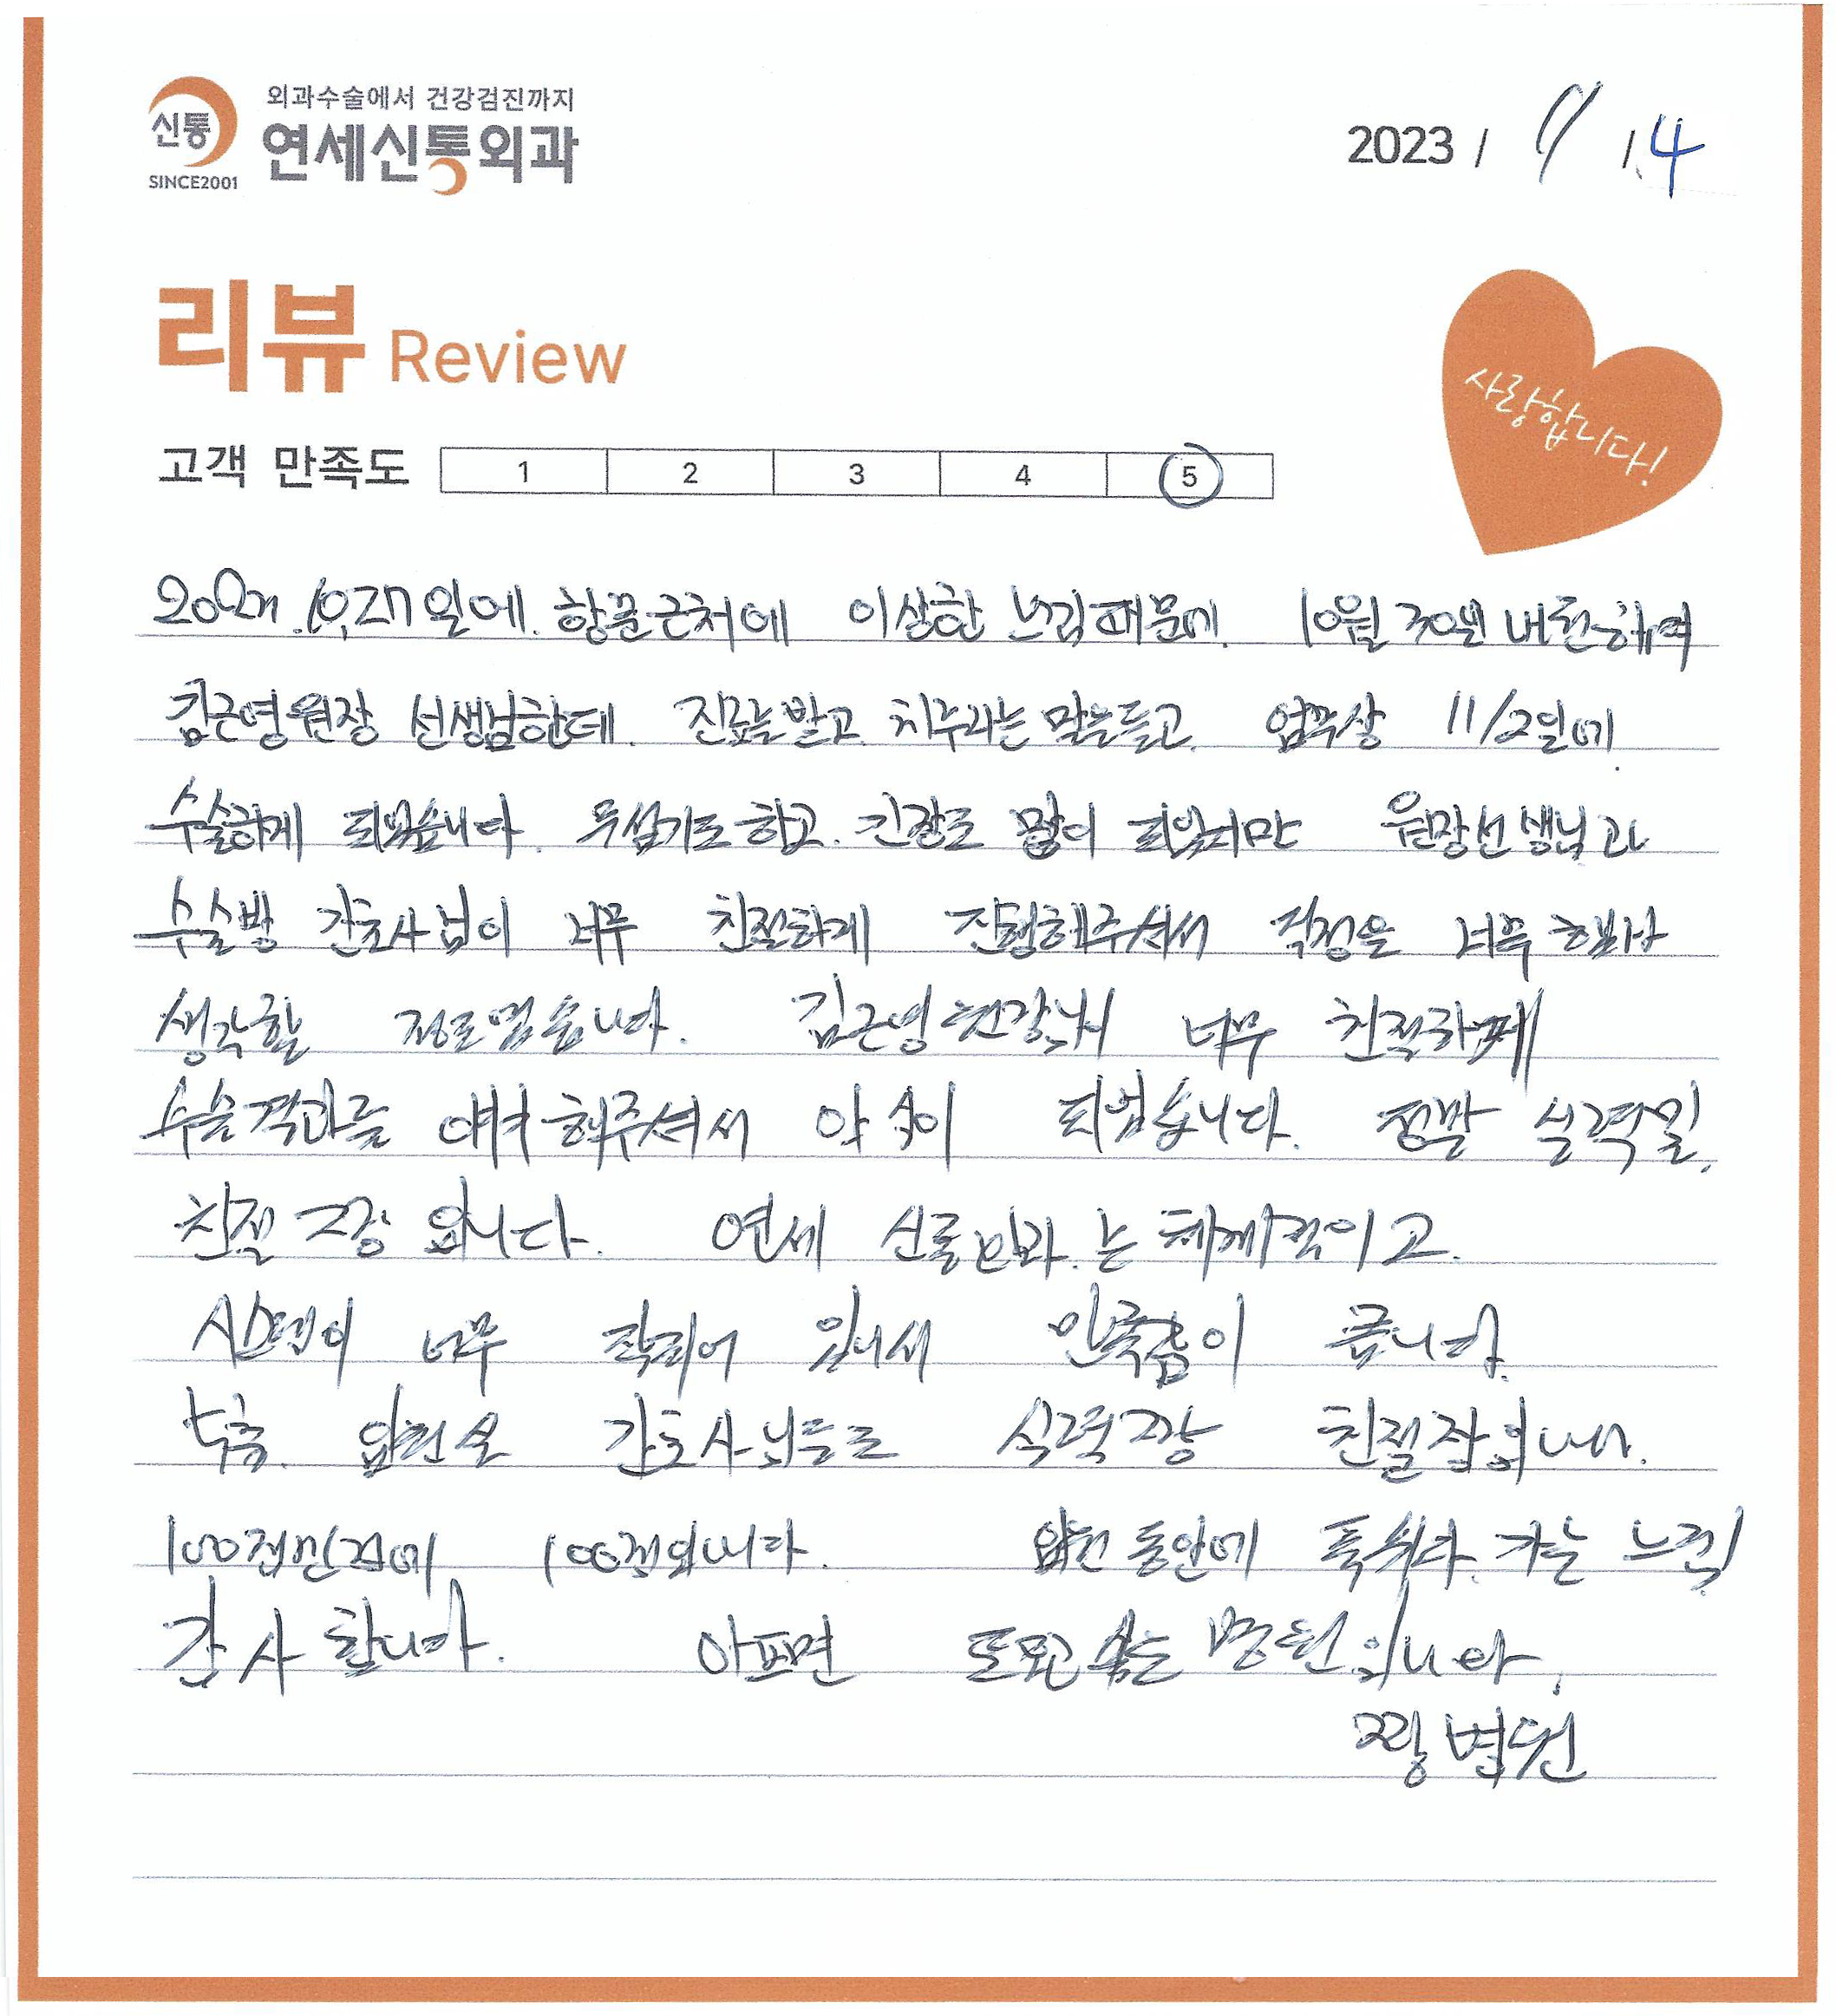 외과수술에서 건강검진까지
신통 연세신통외과
SINCE2001
2023 / 4
리뷰 Review
사랑합니다!
고객 만족도 1 2 3 4 5
10.27일에. 항문근처에 이상한 느낌때문에. 10월 30일
김근영원장 선생님한테. 진료를받고. 치루라는 말을듣고. 업무상 11/2일에
수술하게 되었습니다. 무섭기도하고. 긴장도 많이 되었지만 원장선생님과
수술방 간호사님이 너무 친절하게 진행해주셔서 걱정은 너무
생각할 정도였습니다. 김근영원장님께서 너무 친절하게
수술결과를 얘기해주셔서 안심이 되었습니다. 정말 실력및.
친절 짱 입니다. 연세 신통외과.는 체계적이고.
시스템이 너무 잘되어 있어서 만족감이 큽니다.
간호사님들도 실력짱 친절짱입니다.
100점만점에 100점입니다. 입원 동안에 푹쉬다. 가는 느낌
감사합니다. 아프면 또오고싶은 병원입니다.
짱 병원